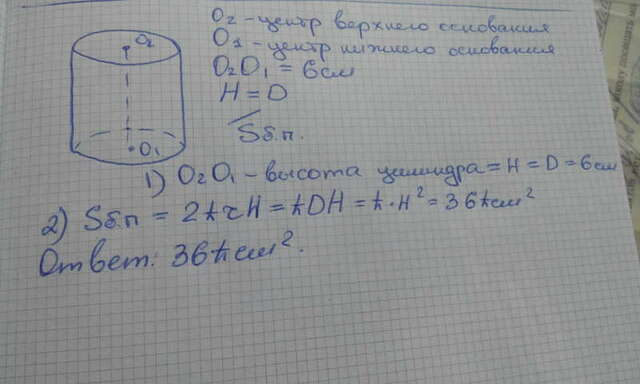 O₂ - центр верхнего основания
O₁ - центр нижнего основания
O₂O₁ = 6 см
H = D
Sб.п.
O₂
O₁
1) O₂O₁ - высота цилиндра = H = D = 6 см
2) Sб.п = 2πrH = πDH = π·H² = 36π см²
Ответ: 36π см².